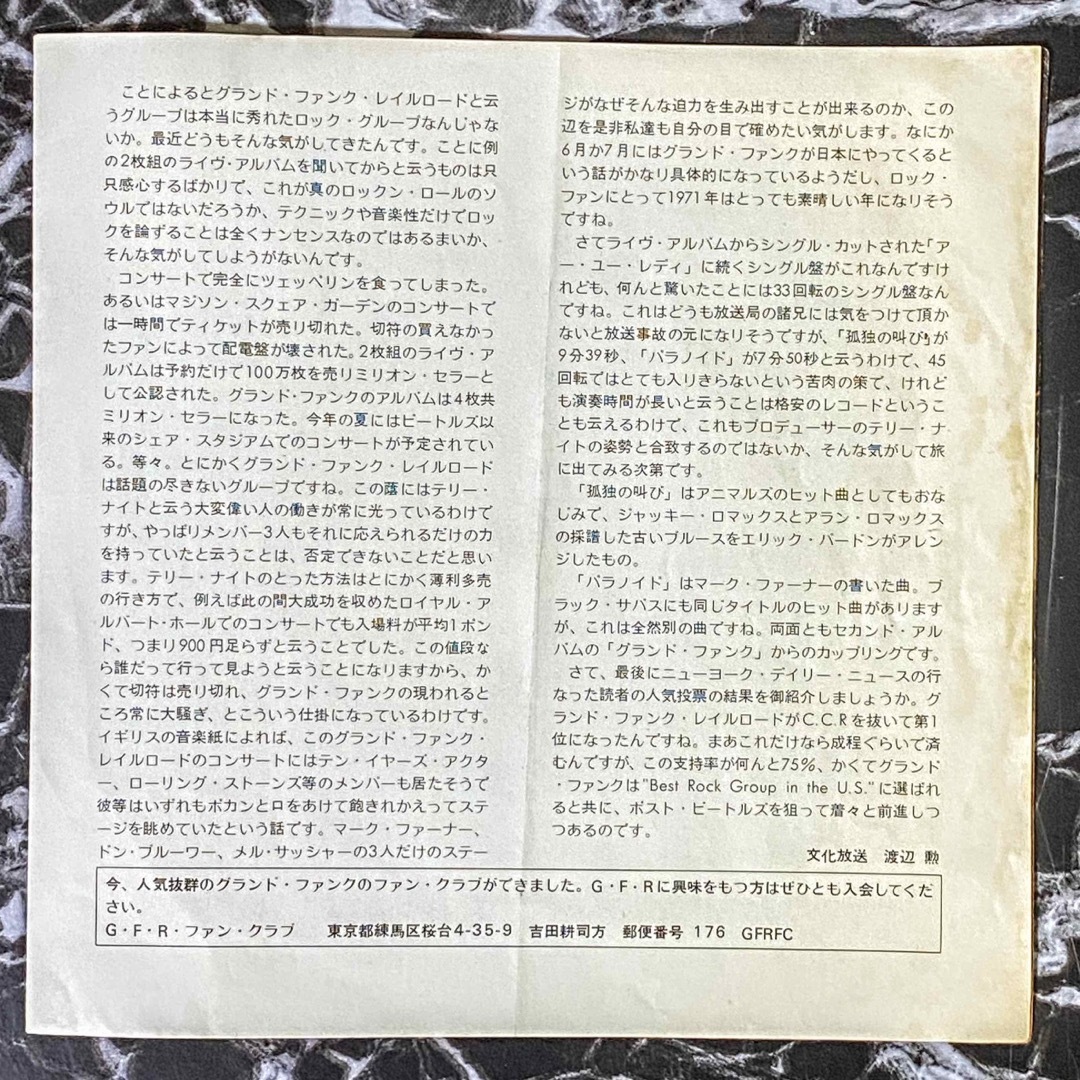 ことによるとグランド・ファンク・レイルロードと云
うグループは本当に秀れたロック・グループなんじゃな
いか。最近どうもそんな気がしてきたんです。ことに例
の2枚組のライヴ・アルバムを聞いてからと云うものは只
只感心するばかりで、これが真のロックン・ロールのソ
ウルではないだろうか、テクニックや音楽性だけでロッ
クを論ずることは全くナンセンスなのではあるまいか、
そんな気がしてしようがないんです。
コンサートで完全にツェッペリンを食ってしまった。
あるいはマジソン・スクェア・ガーデンのコンサートで
は一時間でティケットが売り切れた。切符の買えなかっ
たファンによって配電盤が壊された。2枚組のライヴ・ア
ルバムは予約だけで100万枚を売りミリオン・セラーと
して公認された。グランド・ファンクのアルバムは4枚共
ミリオン・セラーになった。今年の夏にはビートルズ以
来のシェア・スタジアムでのコンサートが予定されてい
る。等々。とにかくグランド・ファンク・レイルロード
は話題の尽きないグループですね。この蔭にはテリー・
ナイトと云う大変偉い人の働きが常に光っているわけで
すが、やっぱりメンバー3人もそれに応えられるだけの力
を持っていたと云うことは、否定できないことだと思い
ます。テリー・ナイトのとった方法はとにかく薄利多売
の行き方で、例えば此の間大成功を収めたロイヤル・ア
ルバート・ホールでのコンサートでも入場料が平均1ポン
ド、つまり900円足らずと云うことでした。この値段な
ら誰だって行って見ようと云うことになりますから、か
くて切符は売り切れ、グランド・ファンクの現われると
ころ常に大騒ぎ、とこういう仕掛になっているわけです。
イギリスの音楽紙によれば、このグランド・ファンク・
レイルロードのコンサートにはテン・イヤーズ・アクタ
ー、ローリング・ストーンズ等のメンバーも居たそうで
彼等はいずれもポカンと口をあけて飽きれかえってステ
ージを眺めていたという話です。マーク・ファーナー、
ドン・ブルーワー、メル・サッシャーの3人だけのステー
ジがなぜそんな迫力を生み出すことが出来るのか、この
辺を是非私達も自分の目で確めたい気がします。なにか
6月か7月にはグランド・ファンクが日本にやってくると
いう話がかなり具体的になっているようだし、ロック・
ファンにとって1971年はとっても素晴しい年になりそう
ですね。
さてライヴ・アルバムからシングル・カットされた「ア
ー・ユー・レディ」に続くシングル盤がこれなんですけ
れども、何んと驚いたことには33回転のシングル盤なん
ですね。これはどうも放送局の諸兄には気をつけて頂か
ないと放送事故の元になりそうですが、「孤独の叫び」が
9分39秒、「パラノイド」が7分50秒と云うわけで、45
回転ではとても入りきらないという苦肉の策で、けれど
も演奏時間が長いと云うことは格安のレコードというこ
とも云えるわけで、これもプロデューサーのテリー・ナ
イトの姿勢と合致するのではないか、そんな気がして旅
に出てみる次第です。
「孤独の叫び」はアニマルズのヒット曲としてもおな
じみで、ジャッキー・ロマックスとアラン・ロマックス
の採譜した古いブルースをエリック・バードンがアレン
ジしたもの。
「パラノイド」はマーク・ファーナーの書いた曲。ブ
ラック・サバスにも同じタイトルのヒット曲があります
が、これは全然別の曲ですね。両面ともセカンド・アル
バムの「グランド・ファンク」からのカップリングです。
さて、最後にニューヨーク・デイリー・ニュースの行
なった読者の人気投票の結果を御紹介しましょうか。グ
ランド・ファンク・レイルロードがC.C.Rを抜いて第1
位になったんですね。まあこれだけなら成程ぐらいで済
むんですが、この支持率が何んと75%、かくてグランド
・ファンクは"Best Rock Group in the U.S."に選ばれ
ると共に、ポスト・ビートルズを狙って着々と前進しつ
つあるのです。
文化放送 渡辺 勲
今、人気抜群のグランド・ファンクのファン・クラブができました。G・F・Rに興味をもつ方はぜひとも入会してくだ
さい。
G・F・R・ファン・クラブ 東京都練馬区桜台4-35-9 吉田耕司方 郵便番号 176 GFRFC